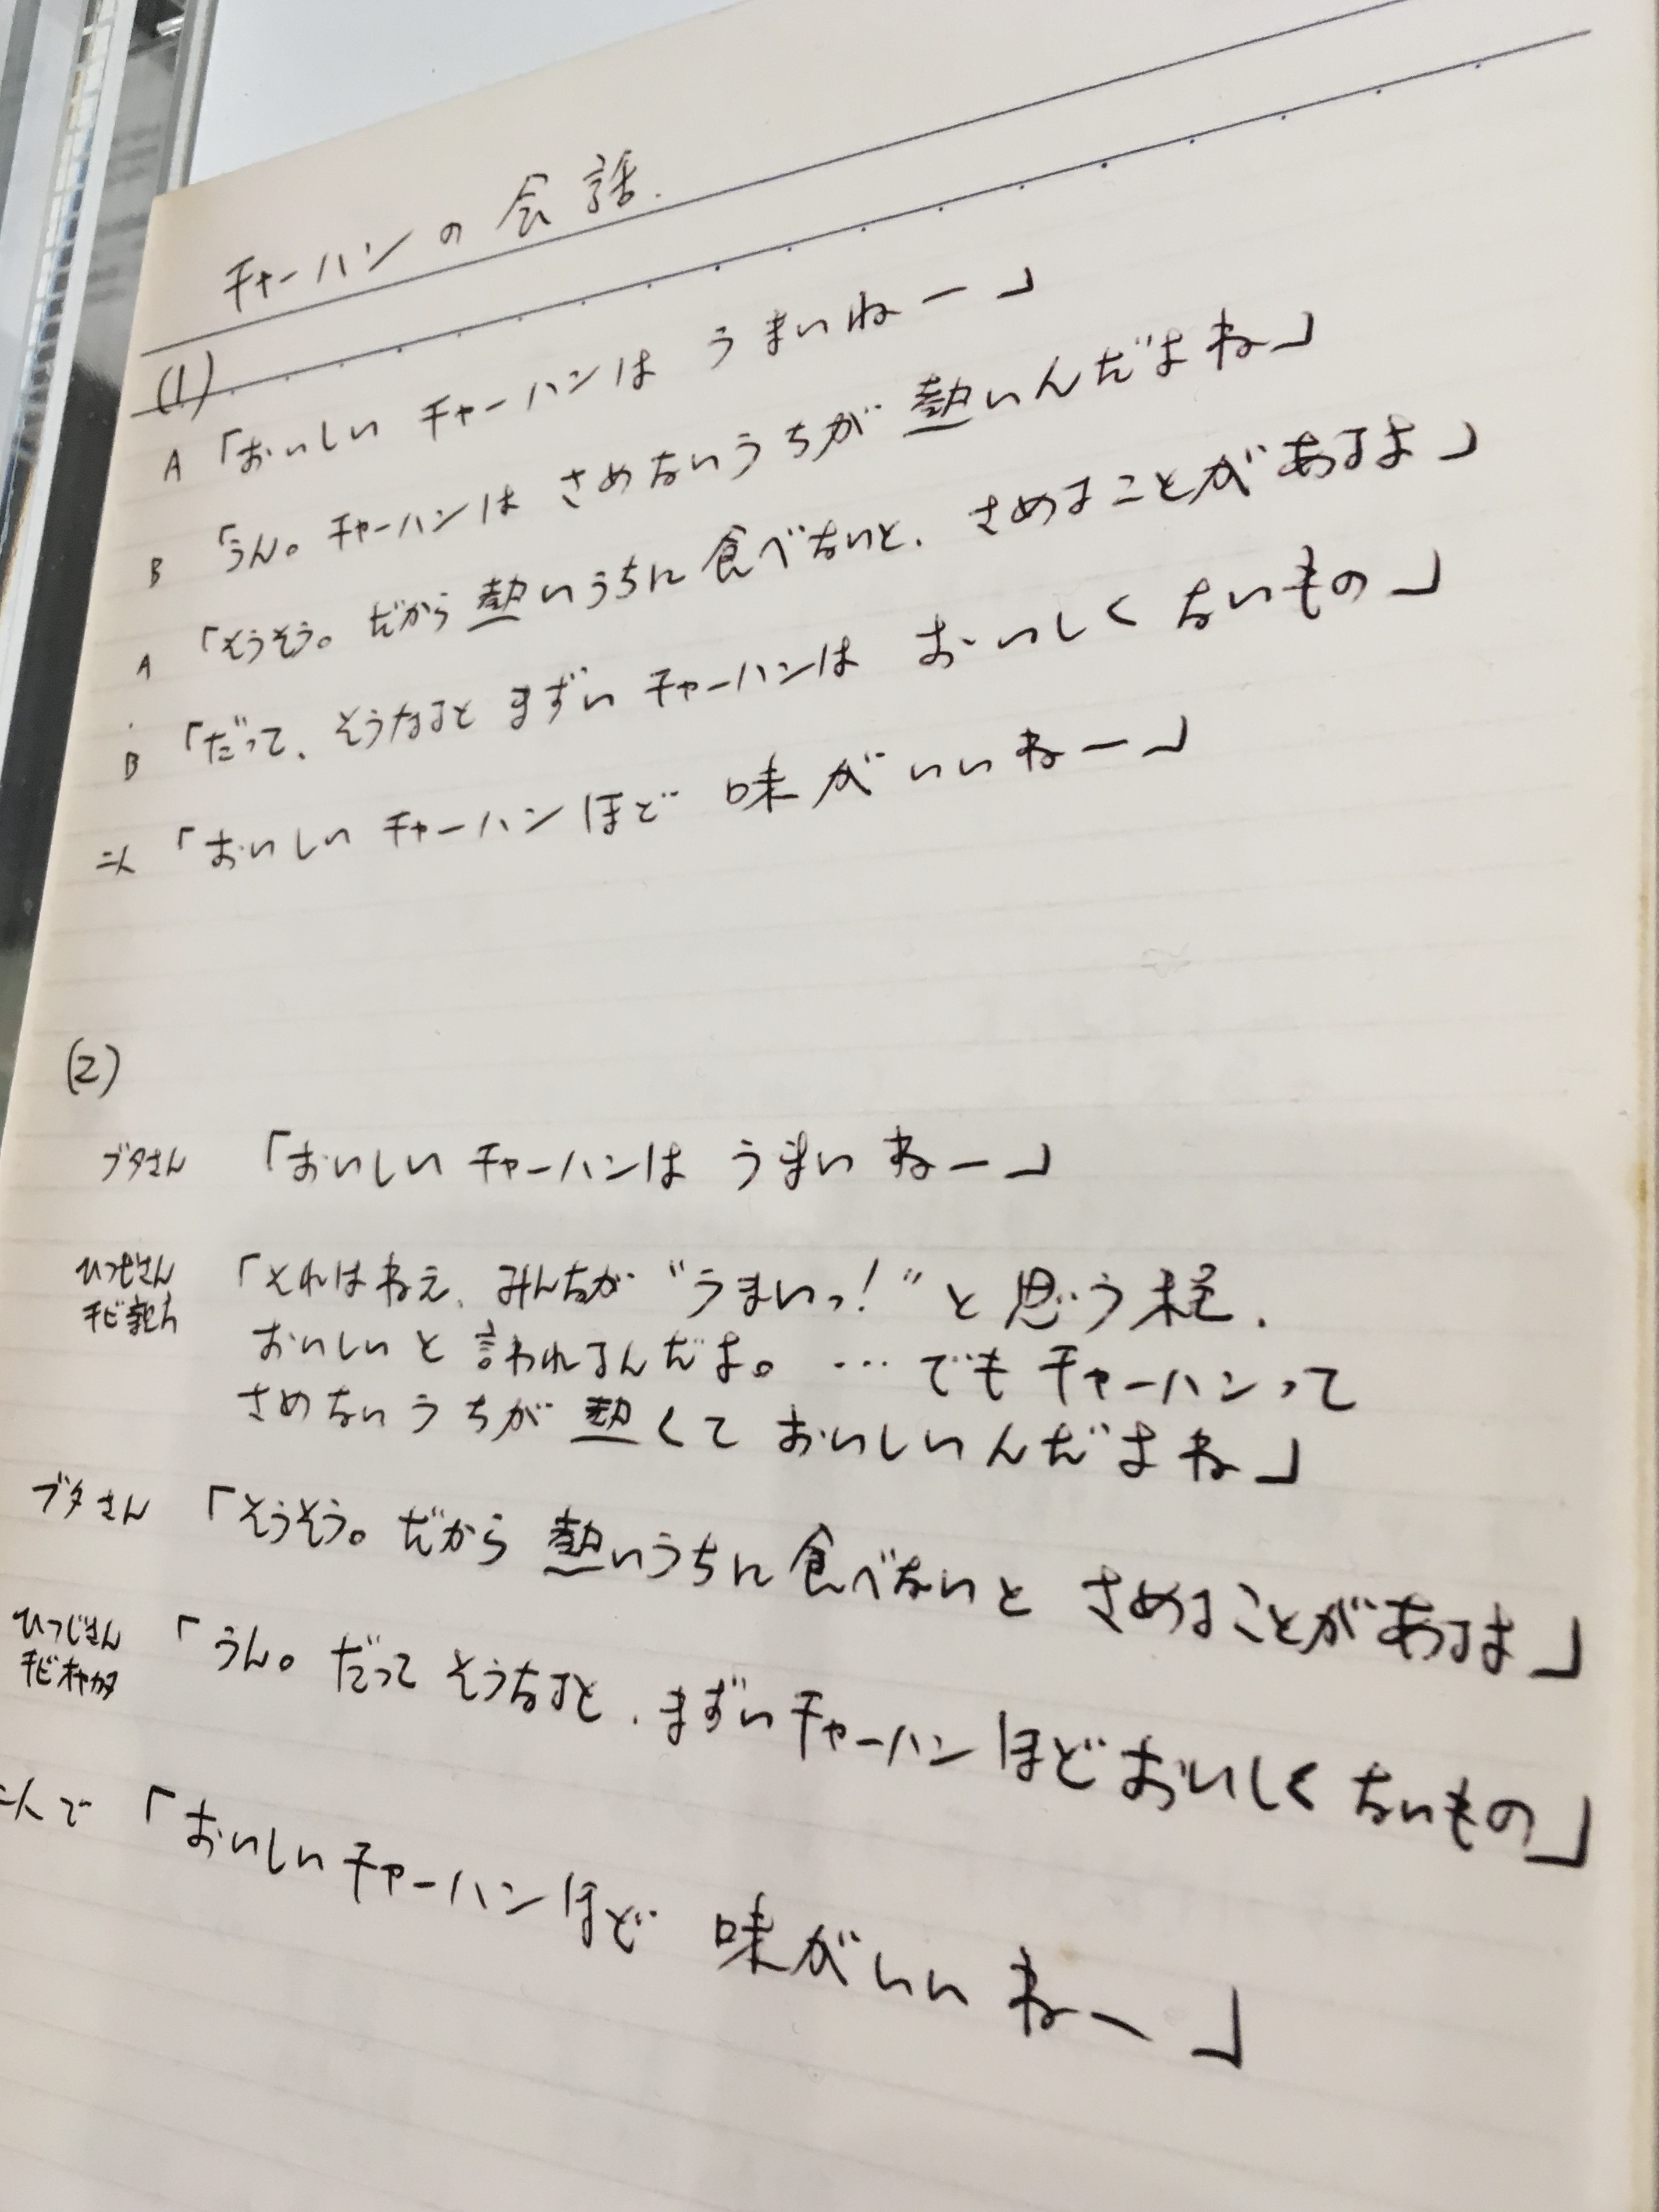 チャーハンの会話.
(1)
A 「おいしい チャーハンは うまいねー」
B 「うん。チャーハンは さめないうちが 熱いんだよね」
A 「そうそう。だから 熱いうちに 食べないと、さめることがあるよ」
B 「だって、そうなると まずい チャーハンは おいしく ないもの」
二人 「おいしい チャーハンほど 味がいいねー」
(2)
ブタさん 「おいしい チャーハンは うまい ねー」
ひつじさん 「それはねえ、みんなが “うまいっ!” と 思う程、
チビ親方 おいしいと 言われるんだよ。 … でも チャーハンって
さめないうちが 熱くて おいしいんだよね」
ブタさん 「そうそう。だから 熱いうちに 食べないと さめることがあるよ」
ひつじさん 「うん。だって そうなると、まずいチャーハン ほど おいしく ないもの」
チビオヤカタ
二人で 「おいしい チャーハンほど 味がいい ねー」